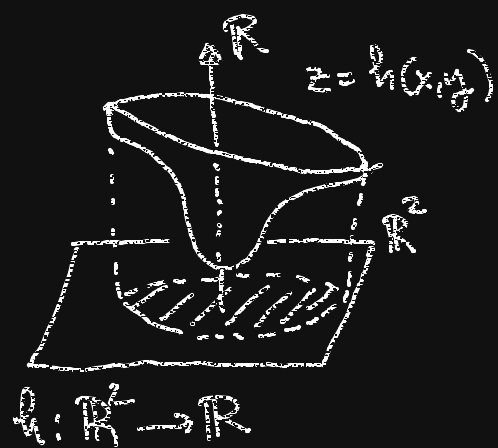 ℝ
z = h(x,y)
ℝ²
h : ℝ² → ℝ